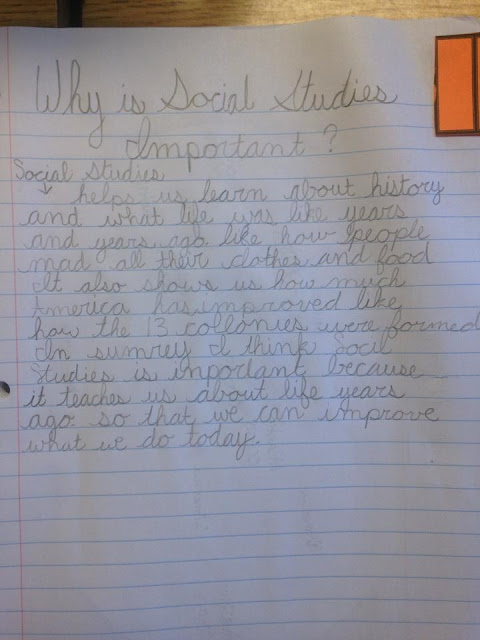 Why is Social Studies
Important?
Social Studies
helps us learn about history
and what life was like years
and years ago like how people
mad all their clothes and food
It also shows us how much
America has improved like
how the 13 collonies were formed
In sumrey I think Socil
Studies is important because
it teaches us about life years
ago so that we can improve
what we do today.